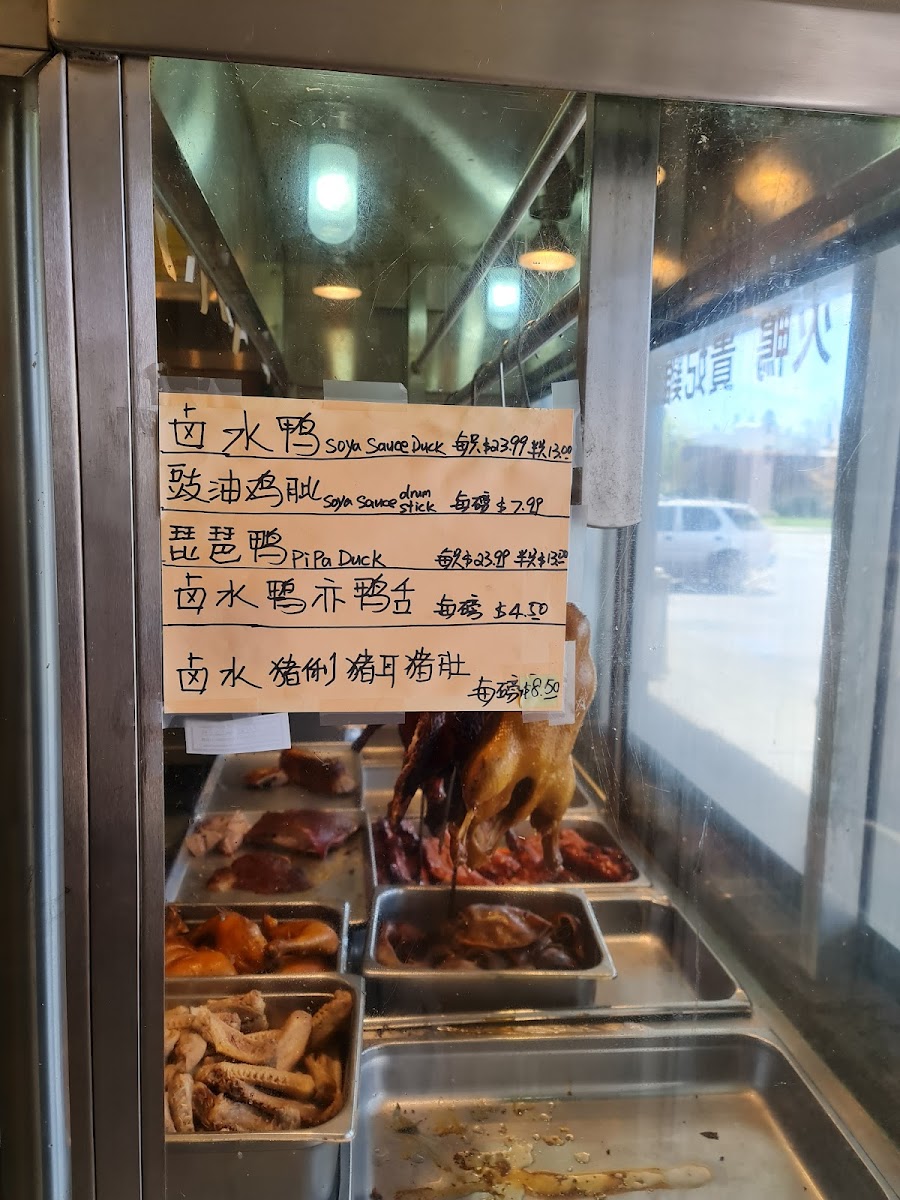 火鴨 貴妃雞
卤水鸭 Soya Sauce Duck 每只$23.99 半只13.00
豉油鸡肶 Soya Sauce drum stick 每磅 $7.99
琵琶鸭 PiPa Duck 每只$23.99 半只$13.00
卤水鸭亦鸭舌 每磅 $4.50
卤水猪俐猪耳猪肚
每磅$8.50